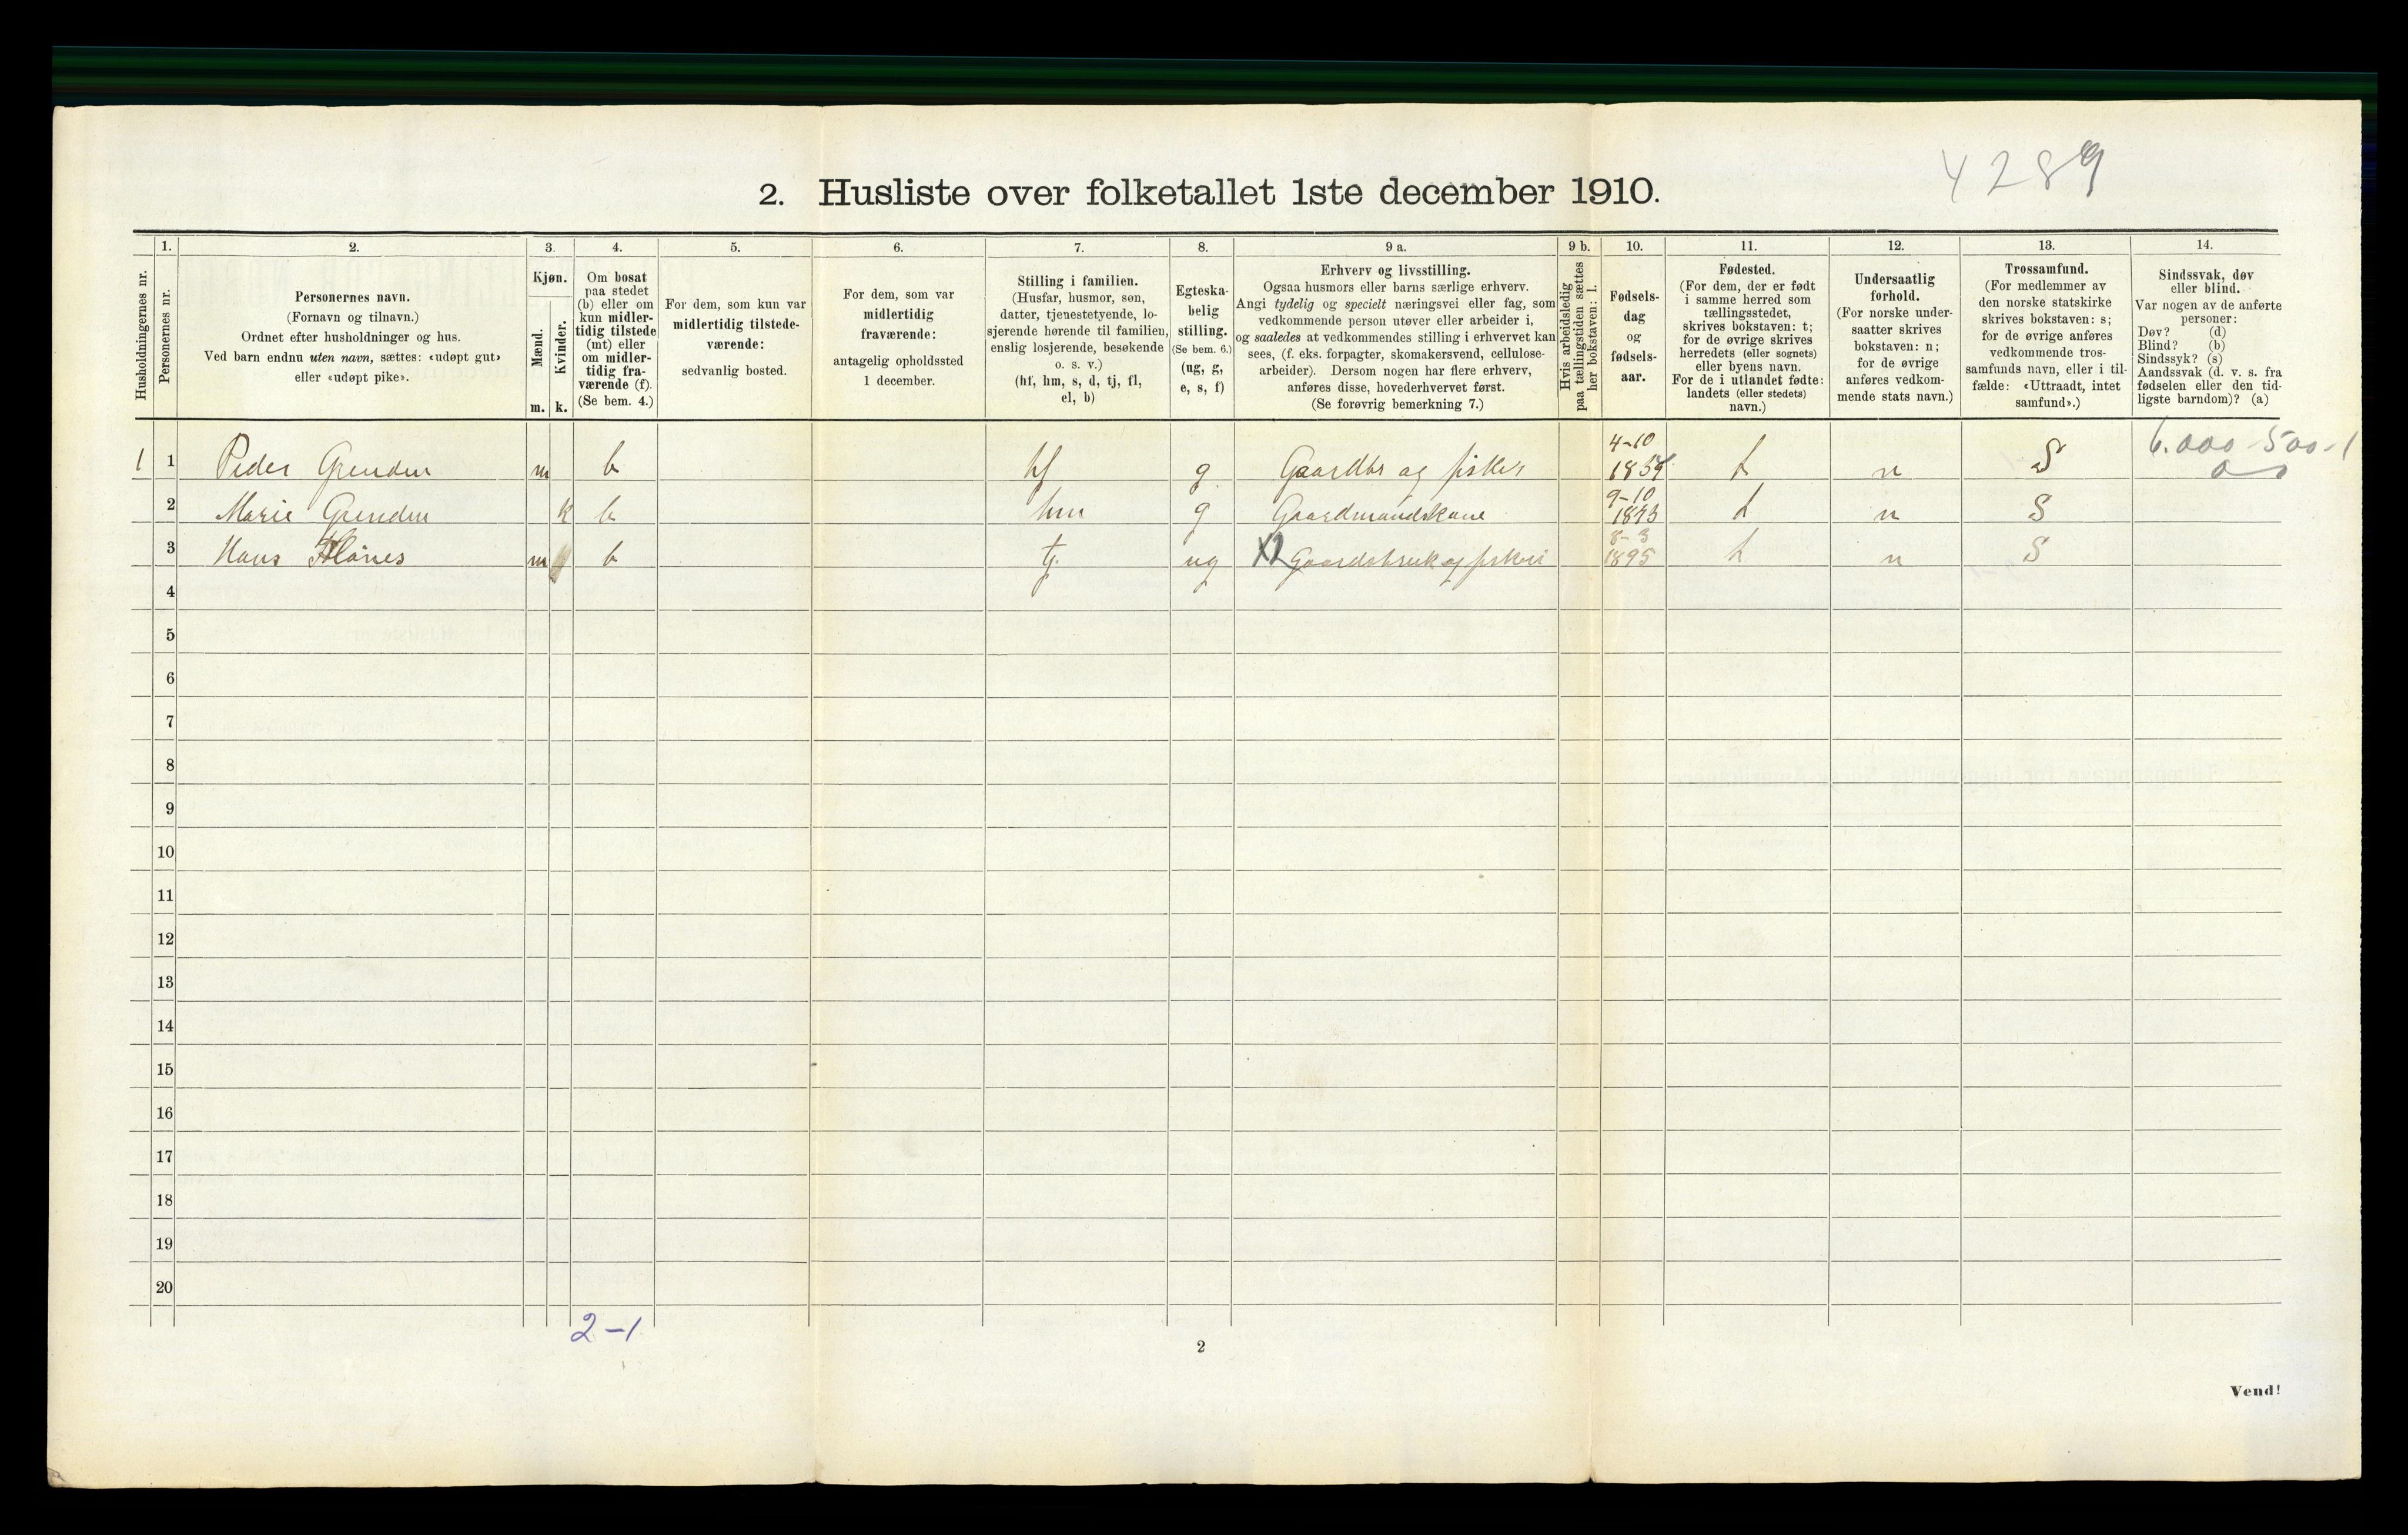 4289
2. Husliste over folketallet 1ste december 1910.
Husholdningernes nr.
1.
Personernes nr.
2.
Personernes navn.
(Fornavn og tilnavn.)
Ordnet efter husholdninger og hus.
Ved barn endnu uten navn, sættes: «udøpt gut»
eller «udøpt pike».
3.
Kjøn.
Mænd.
Kvinder.
m. k.
4.
Om bosat
paa stedet
(b) eller om
kun midler-
tidig tilstede
(mt) eller
om midler-
tidig fra-
værende (f).
(Se bem. 4.)
5.
For dem, som kun var
midlertidig tilstede-
værende:
sedvanlig bosted.
6.
For dem, som var
midlertidig
fraværende:
antagelig opholdssted
1 december.
7.
Stilling i familien.
(Husfar, husmor, søn,
datter, tjenestetyende, lo-
sjerende hørende til familien,
enslig losjerende, besøkende
o. s. v.)
(hf, hm, s, d, tj, fl,
el, b)
8.
Egteska-
belig
stilling.
(Se bem. 6.)
(ug, g,
e, s, f)
9 a.
Erhverv og livsstilling.
Ogsaa husmors eller barns særlige erhverv.
Angi tydelig og specielt næringsvei eller fag, som
vedkommende person utøver eller arbeider i,
og saaledes at vedkommendes stilling i erhvervet kan
sees, (f. eks. forpagter, skomakersvend, cellulose-
arbeider). Dersom nogen har flere erhverv,
anføres disse, hovederhvervet først.
(Se forøvrig bemerkning 7.)
9 b.
Hvis arbeidsledig
paa tællingstiden sættes
her bokstaven: l.
10.
Fødsels-
dag
og
fødsels-
aar.
11.
Fødested.
(For dem, der er født
i samme herred som
tællingsstedet,
skrives bokstaven: t;
for de øvrige skrives
herredets (eller sognets)
eller byens navn.
For de i utlandet fødte:
landets (eller stedets)
navn.)
12.
Undersaatlig
forhold.
(For norske under-
saatter skrives
bokstaven: n;
for de øvrige
anføres vedkom-
mende stats navn.)
13.
Trossamfund.
(For medlemmer av
den norske statskirke
skrives bokstaven: s;
for de øvrige anføres
vedkommende tros-
samfunds navn, eller i til-
fælde: «Uttraadt, intet
samfund».)
14.
Sindssvak, døv
eller blind.
Var nogen av de anførte
personer:
Døv? (d)
Blind? (b)
Sindssyk? (s)
Aandssvak (d. v. s. fra
fødselen eller den tid-
ligste barndom)? (a)
1 1 Peder Grenden m b hf g Gaardbr og fisker 4-10 t n S 6.000-500-1
2 Marie Grenden k b hm g Gaardmandskone 9-10 t n S
3 Hans m b tj ug X2 Gaardsbruk og fiskeri 8-3 1895 t n S
4
5
6
7
8
9
10
11
12
13
14
15
16
17
18
19
20
2-1
2
Vend!